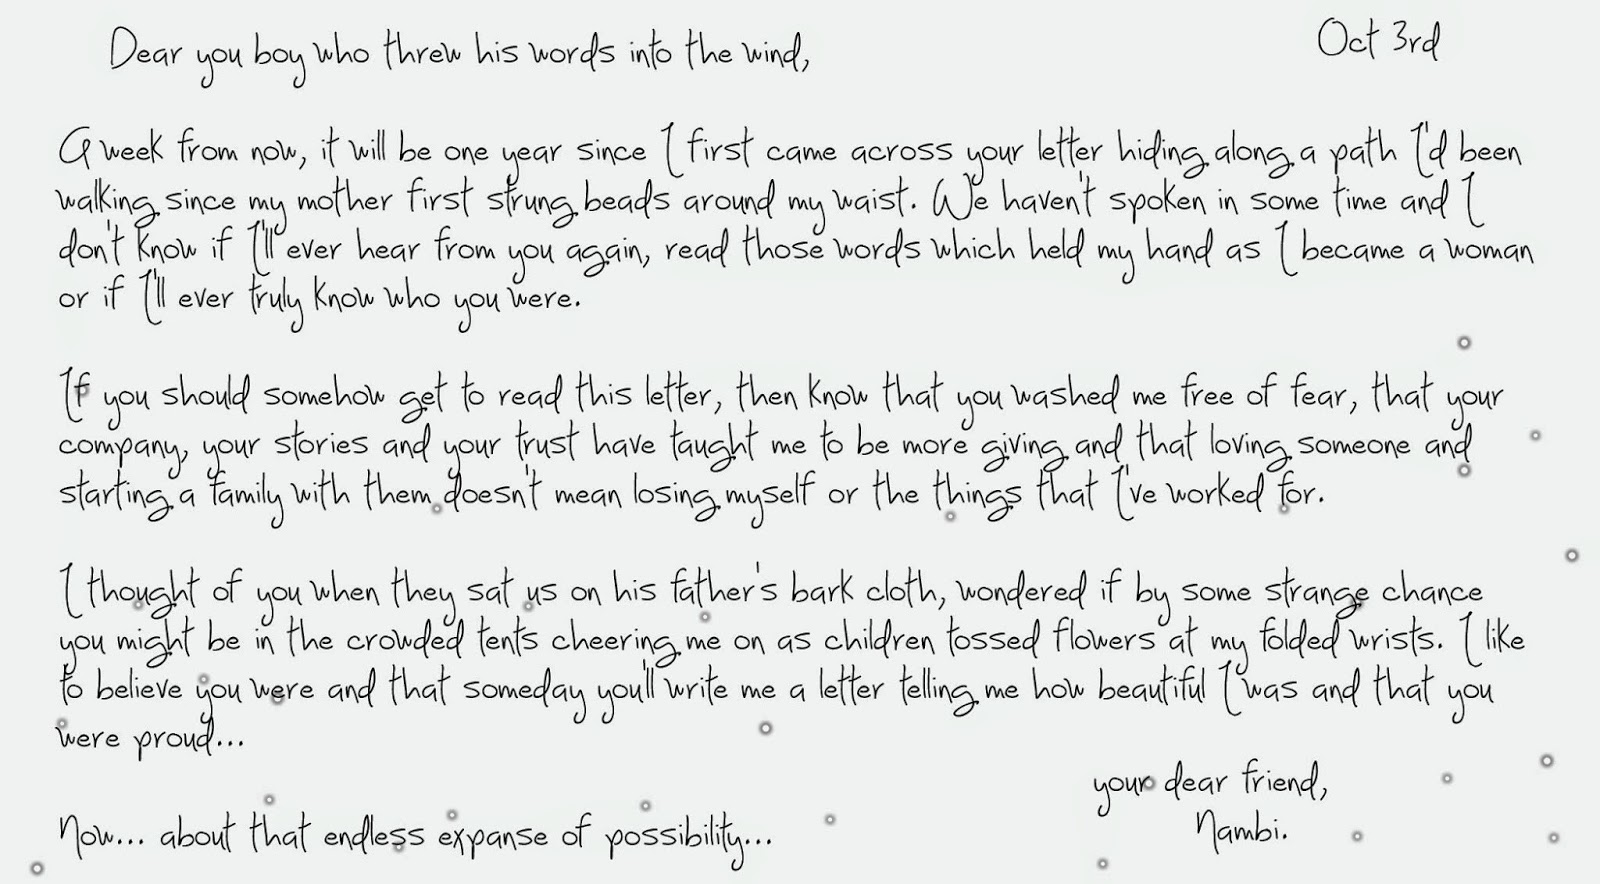 Dear you boy who threw his words into the wind,
Oct 3rd
A week from now, it will be one year since I first came across your letter hiding along a path I'd been
walking since my mother first strung beads around my waist. We haven't spoken in some time and I
don't know if I'll ever hear from you again, read those words which held my hand as I became a woman
or if I'll ever truly know who you were.
If you should somehow get to read this letter, then know that you washed me free of fear, that your
company, your stories and your trust have taught me to be more giving and that loving someone and
starting a family with them doesn't mean losing myself or the things that I've worked for.
I thought of you when they sat us on his father's bark cloth, wondered if by some strange chance
you might be in the crowded tents cheering me on as children tossed flowers at my folded wrists. I like
to believe you were and that someday you'll write me a letter telling me how beautiful I was and that you
were proud...
your dear friend,
Nambi.
Now... about that endless expanse of possibility...